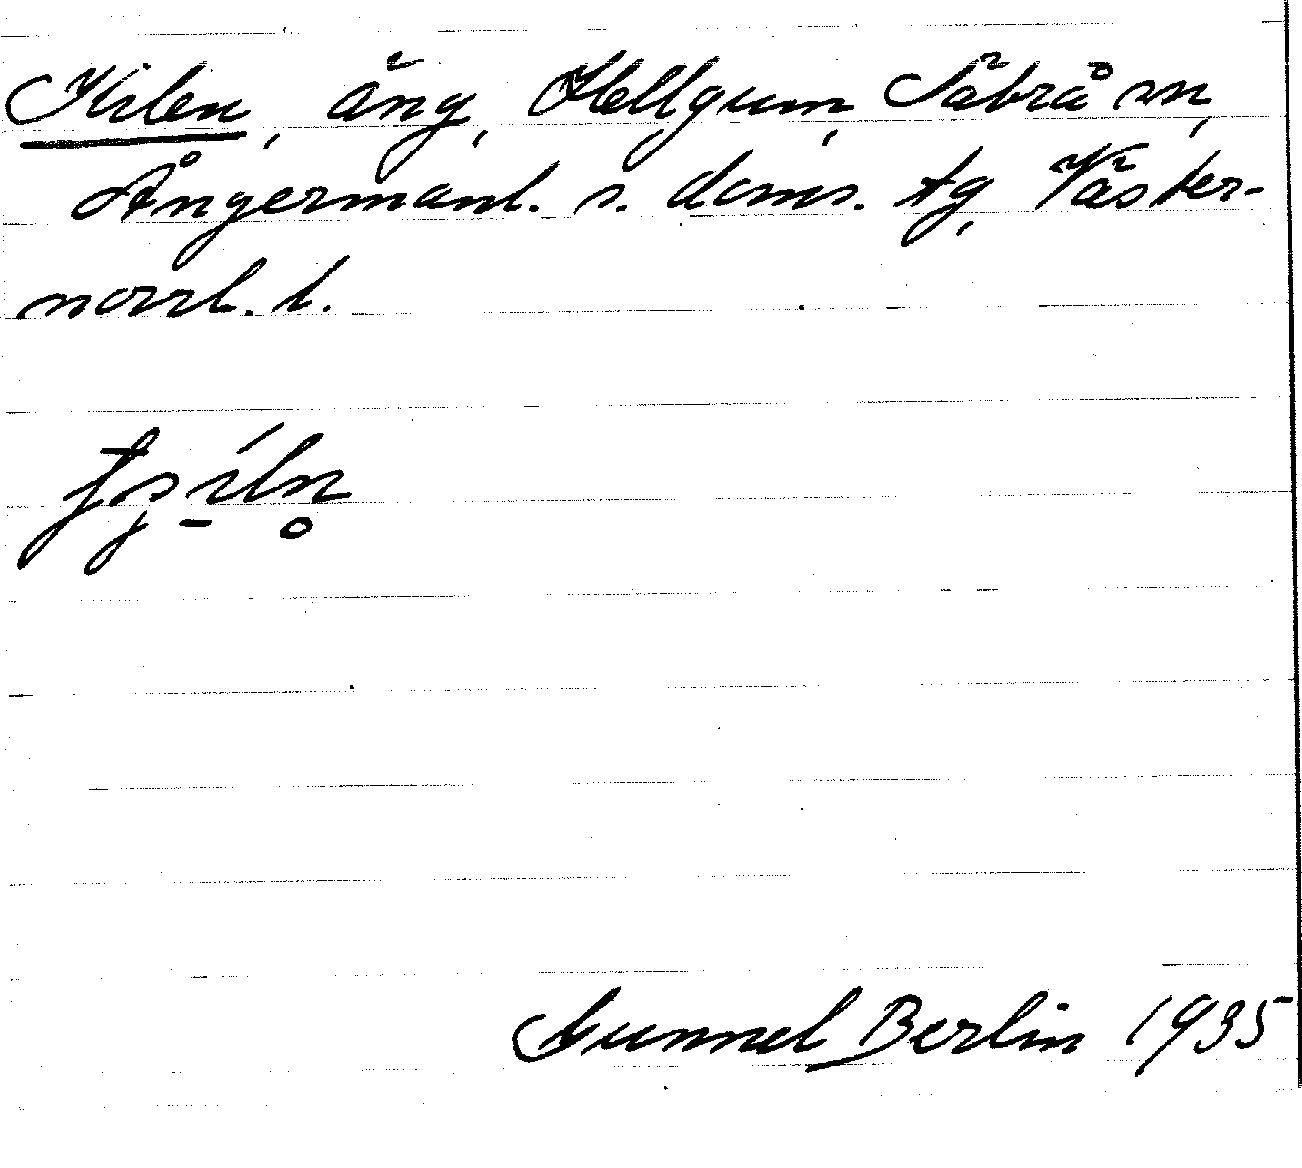 Kilen, äng, Hellgum, Säbrå sn,
Ångermanl. s. doms. tg, Väster-
norrl. l.
Gunnel Berlin 1935